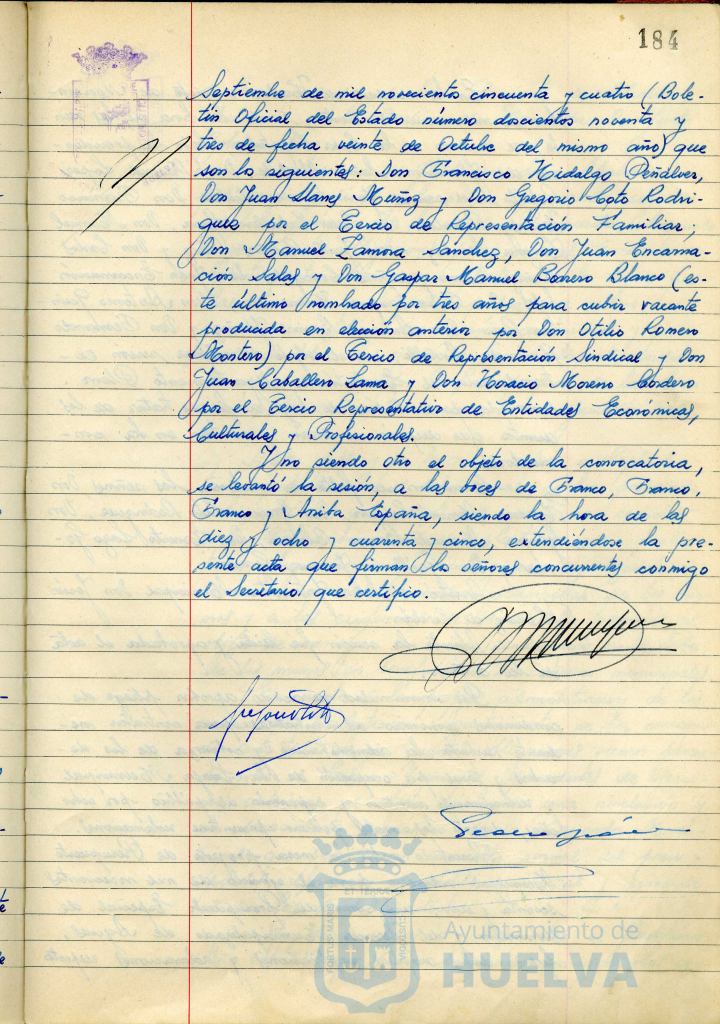 184
Septiembre de mil novecientos cincuenta y cuatro (Bole-
tín Oficial del Estado número doscientos noventa y
tres de fecha veinte de Octubre del mismo año) que
son los siguientes: Don Francisco Hidalgo Peñalver,
Don Juan Llanes Muñoz y Don Gregorio Coto Rodrí-
guez por el Tercio de Representación Familiar;
Don Manuel Zamora Sánchez, Don Juan Encarna-
ción Salas y Don Gaspar Manuel Borrero Blanco (es-
te último nombrado por tres años para cubrir vacante
producida en elección anterior por Don Otilio Romero
Montero) por el Tercio de Representación Sindical y Don
Juan Caballero Lama y Don Horacio Moreno Cordero
por el Tercio Representativo de Entidades Económicas,
Culturales y Profesionales.
Y no siendo otro el objeto de la convocatoria,
se levantó la sesión, a las voces de Franco, Franco,
Franco y Arriba España, siendo la hora de las
diez y ocho y cuarenta y cinco, extendiéndose la pre-
sente acta que firman los señores concurrentes conmigo
el Secretario que certifico.
Ayuntamiento de
HUELVA